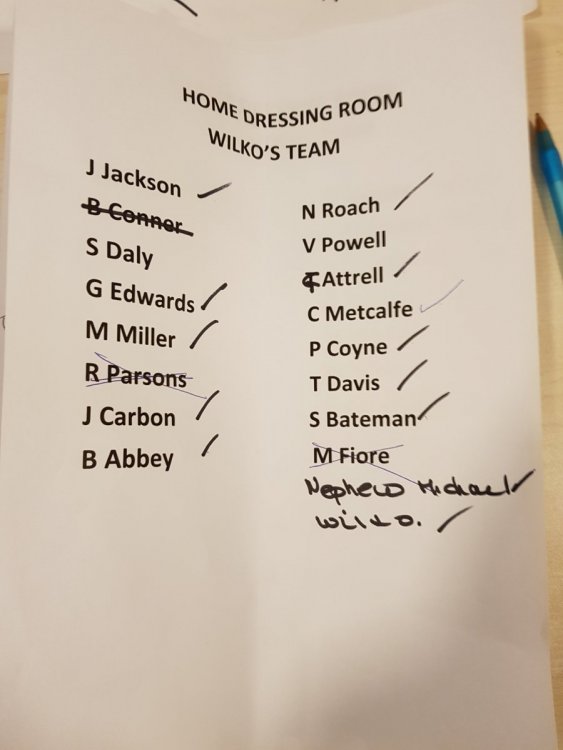 HOME DRESSING ROOM
WILKO'S TEAM
J Jackson
B Conner
S Daly
G Edwards
M Miller
R Parsons
J Carbon
B Abbey
N Roach
V Powell
Attrell
C Metcalfe
P Coyne
T Davis
S Bateman
M Fiore
Nephew Michael
Wilko.